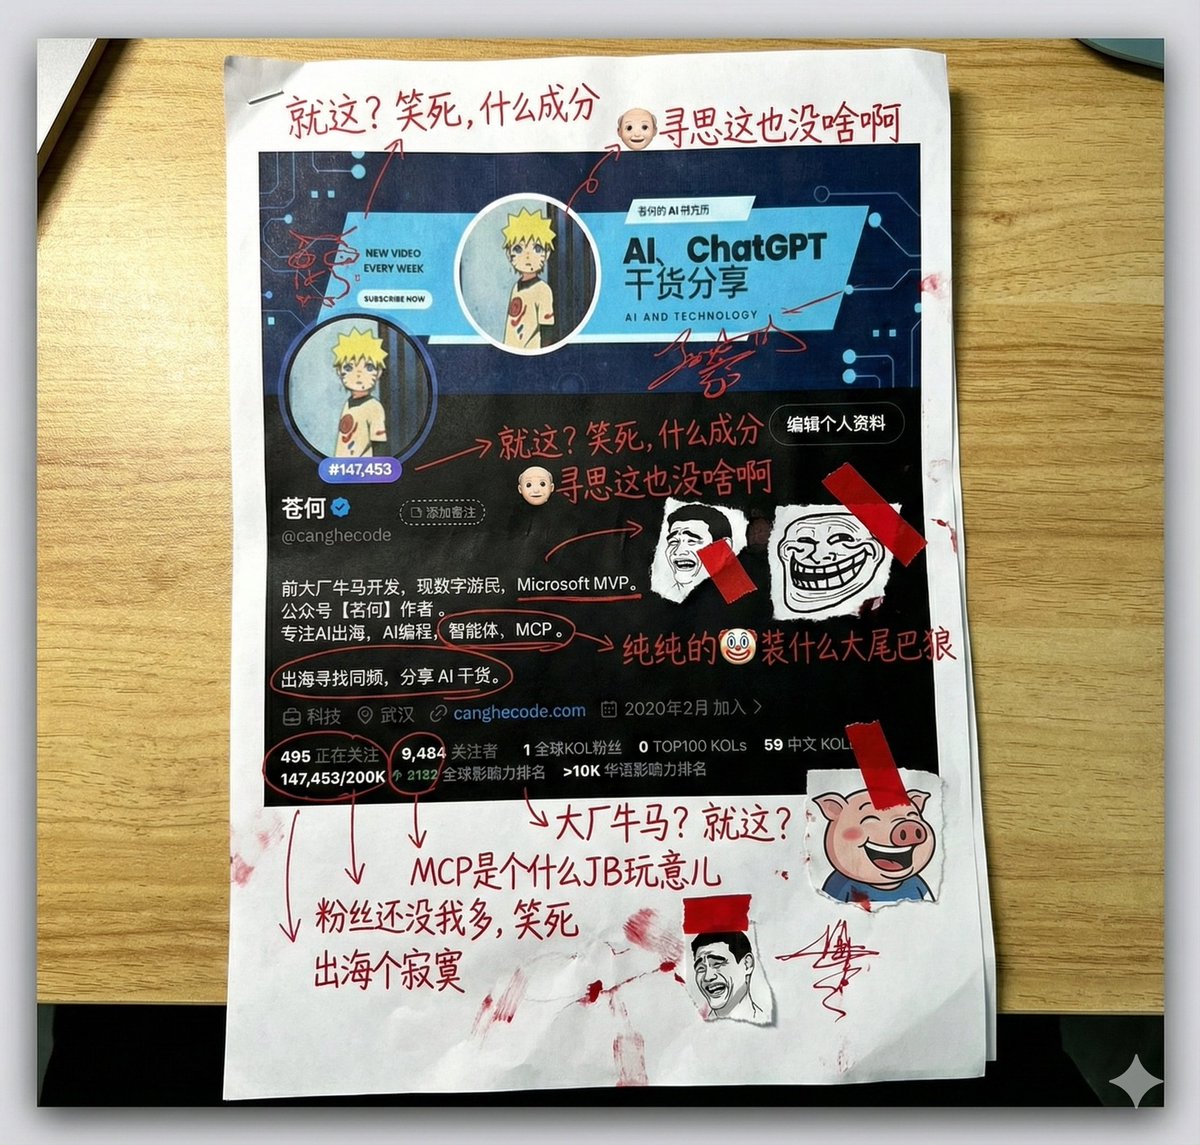 就这？笑死，什么成分
寻思这也没啥啊
NEW VIDEO
EVERY WEEK
SUBSCRIBE NOW
AI、ChatGPT
干货分享
AI AND TECHNOLOGY
就这？笑死，什么成分
寻思这也没啥啊
编辑个人资料
#147,453
苍何
添加备注
@canghecode
前大厂牛马开发，现数字游民，Microsoft MVP。
公众号【苍何】作者。
专注AI出海，AI编程，智能体，MCP。
纯纯的🤡装什么大尾巴狼
出海寻找同频，分享 AI 干货。
科技 武汉 canghecode.com 2020年2月 加入
495 正在关注 9,484 关注者 1 全球KOL粉丝 0 TOP100 KOLs 59 中文 KOL
147,453/200K 2182 全球影响力排名 >10K 华语影响力排名
大厂牛马？就这？
MCP是个什么JB玩意儿
粉丝还没我多，笑死
出海个寂寞